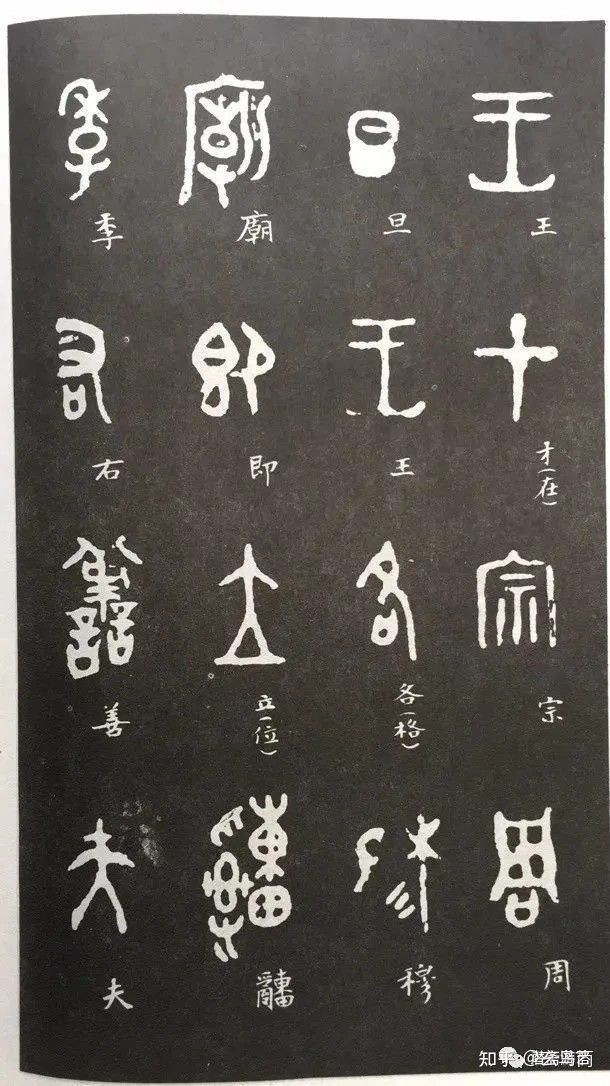 王 才(在) 宗 周
旦 王 各(格) 穆
廟 即 立(位)
季 右 善 夫
知乎